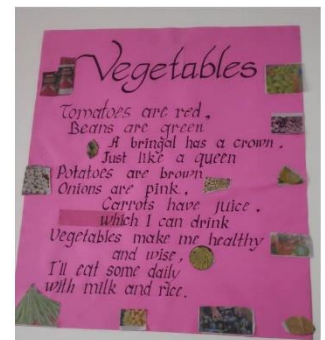 Vegetables
Tomatoes are red,
Beans are green
A bringal has a crown,
Just like a queen
Potatoes are brown.
Onions are pink,
Carrots have juice,
which I can drink
Vegetables make me healthy
and wise,
I'll eat some daily
with milk and rice.